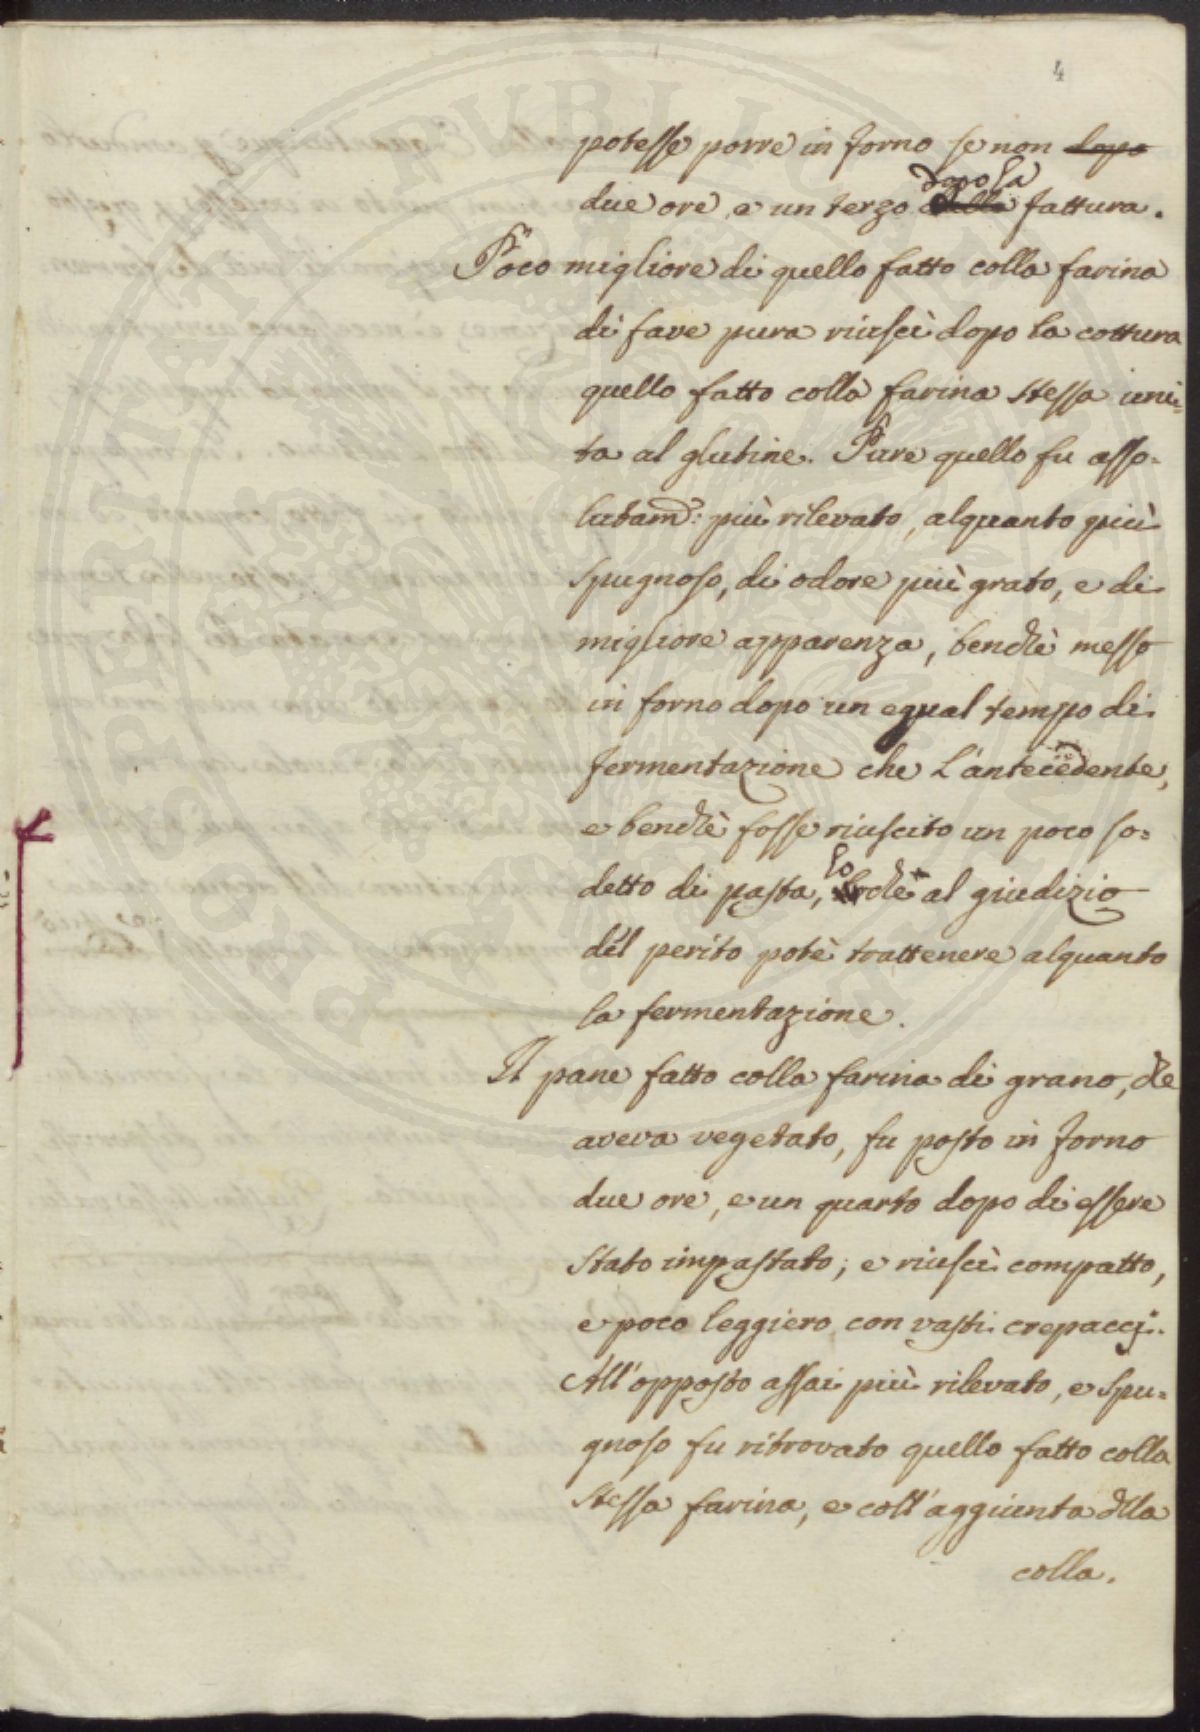 4
potesse porre in forno se non dopo
dopo la
due ore, e un terzo dalla fattura.
Poco migliore di quello fatto colla farina
di fave pura riuscì dopo la cottura
quello fatto colla farina stessa uni-
ta al glutine. Pure quello fu asso-
lutam.: più rilevato, alquanto più
spugnoso, di odore più grato, e di
migliore apparenza, benchè messo
in forno dopo un egual tempo di
fermentazione che l'antecedente,
e benchè fosse riuscito un poco so-
lo
detto di pasta, che al giudizio
del perito potè trattenere alquanto
la fermentazione.
Il pane fatto colla farina di grano, che
aveva vegetato, fu posto in forno
due ore, e un quarto dopo di essere
stato impastato; e riuscì compatto,
e poco leggiero con vasti crepaccj.
All'opposto assai più rilevato, e spu-
gnoso fu ritrovato quello fatto colla
stessa farina, e coll'aggiunta della
colla.